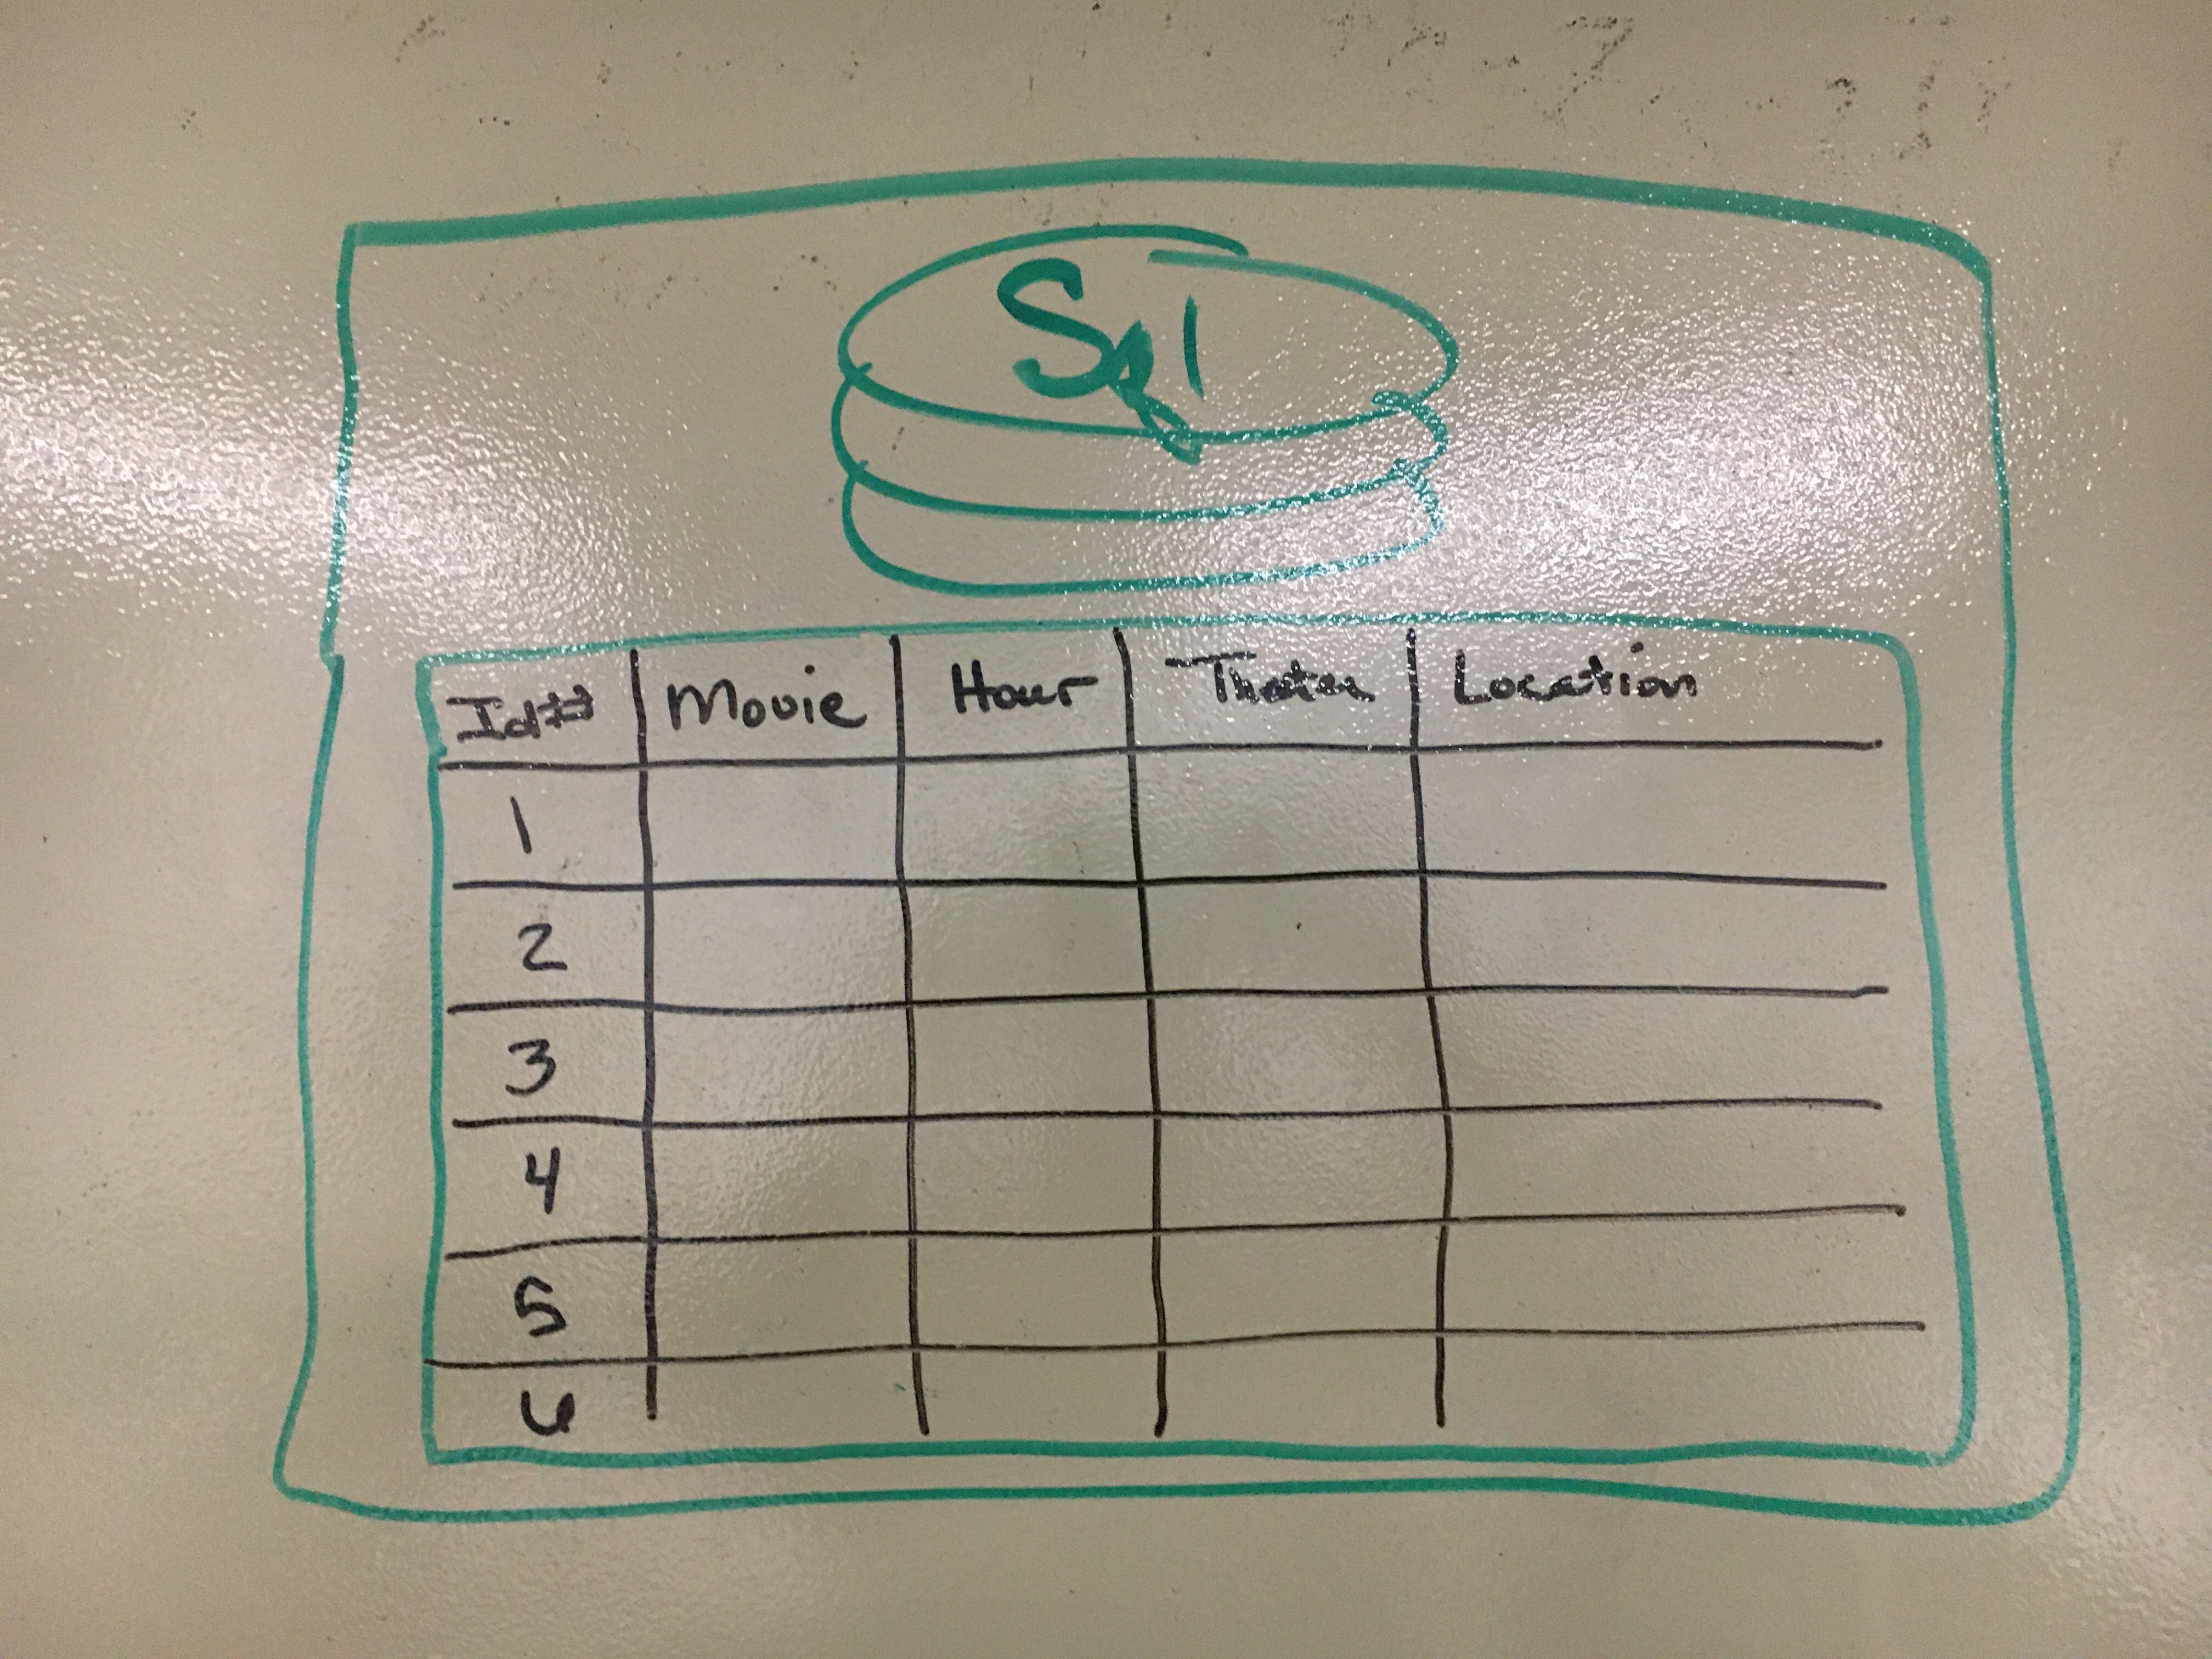 Sql
Id# Movie Hour Theater Location
1
2
3
4
5
6